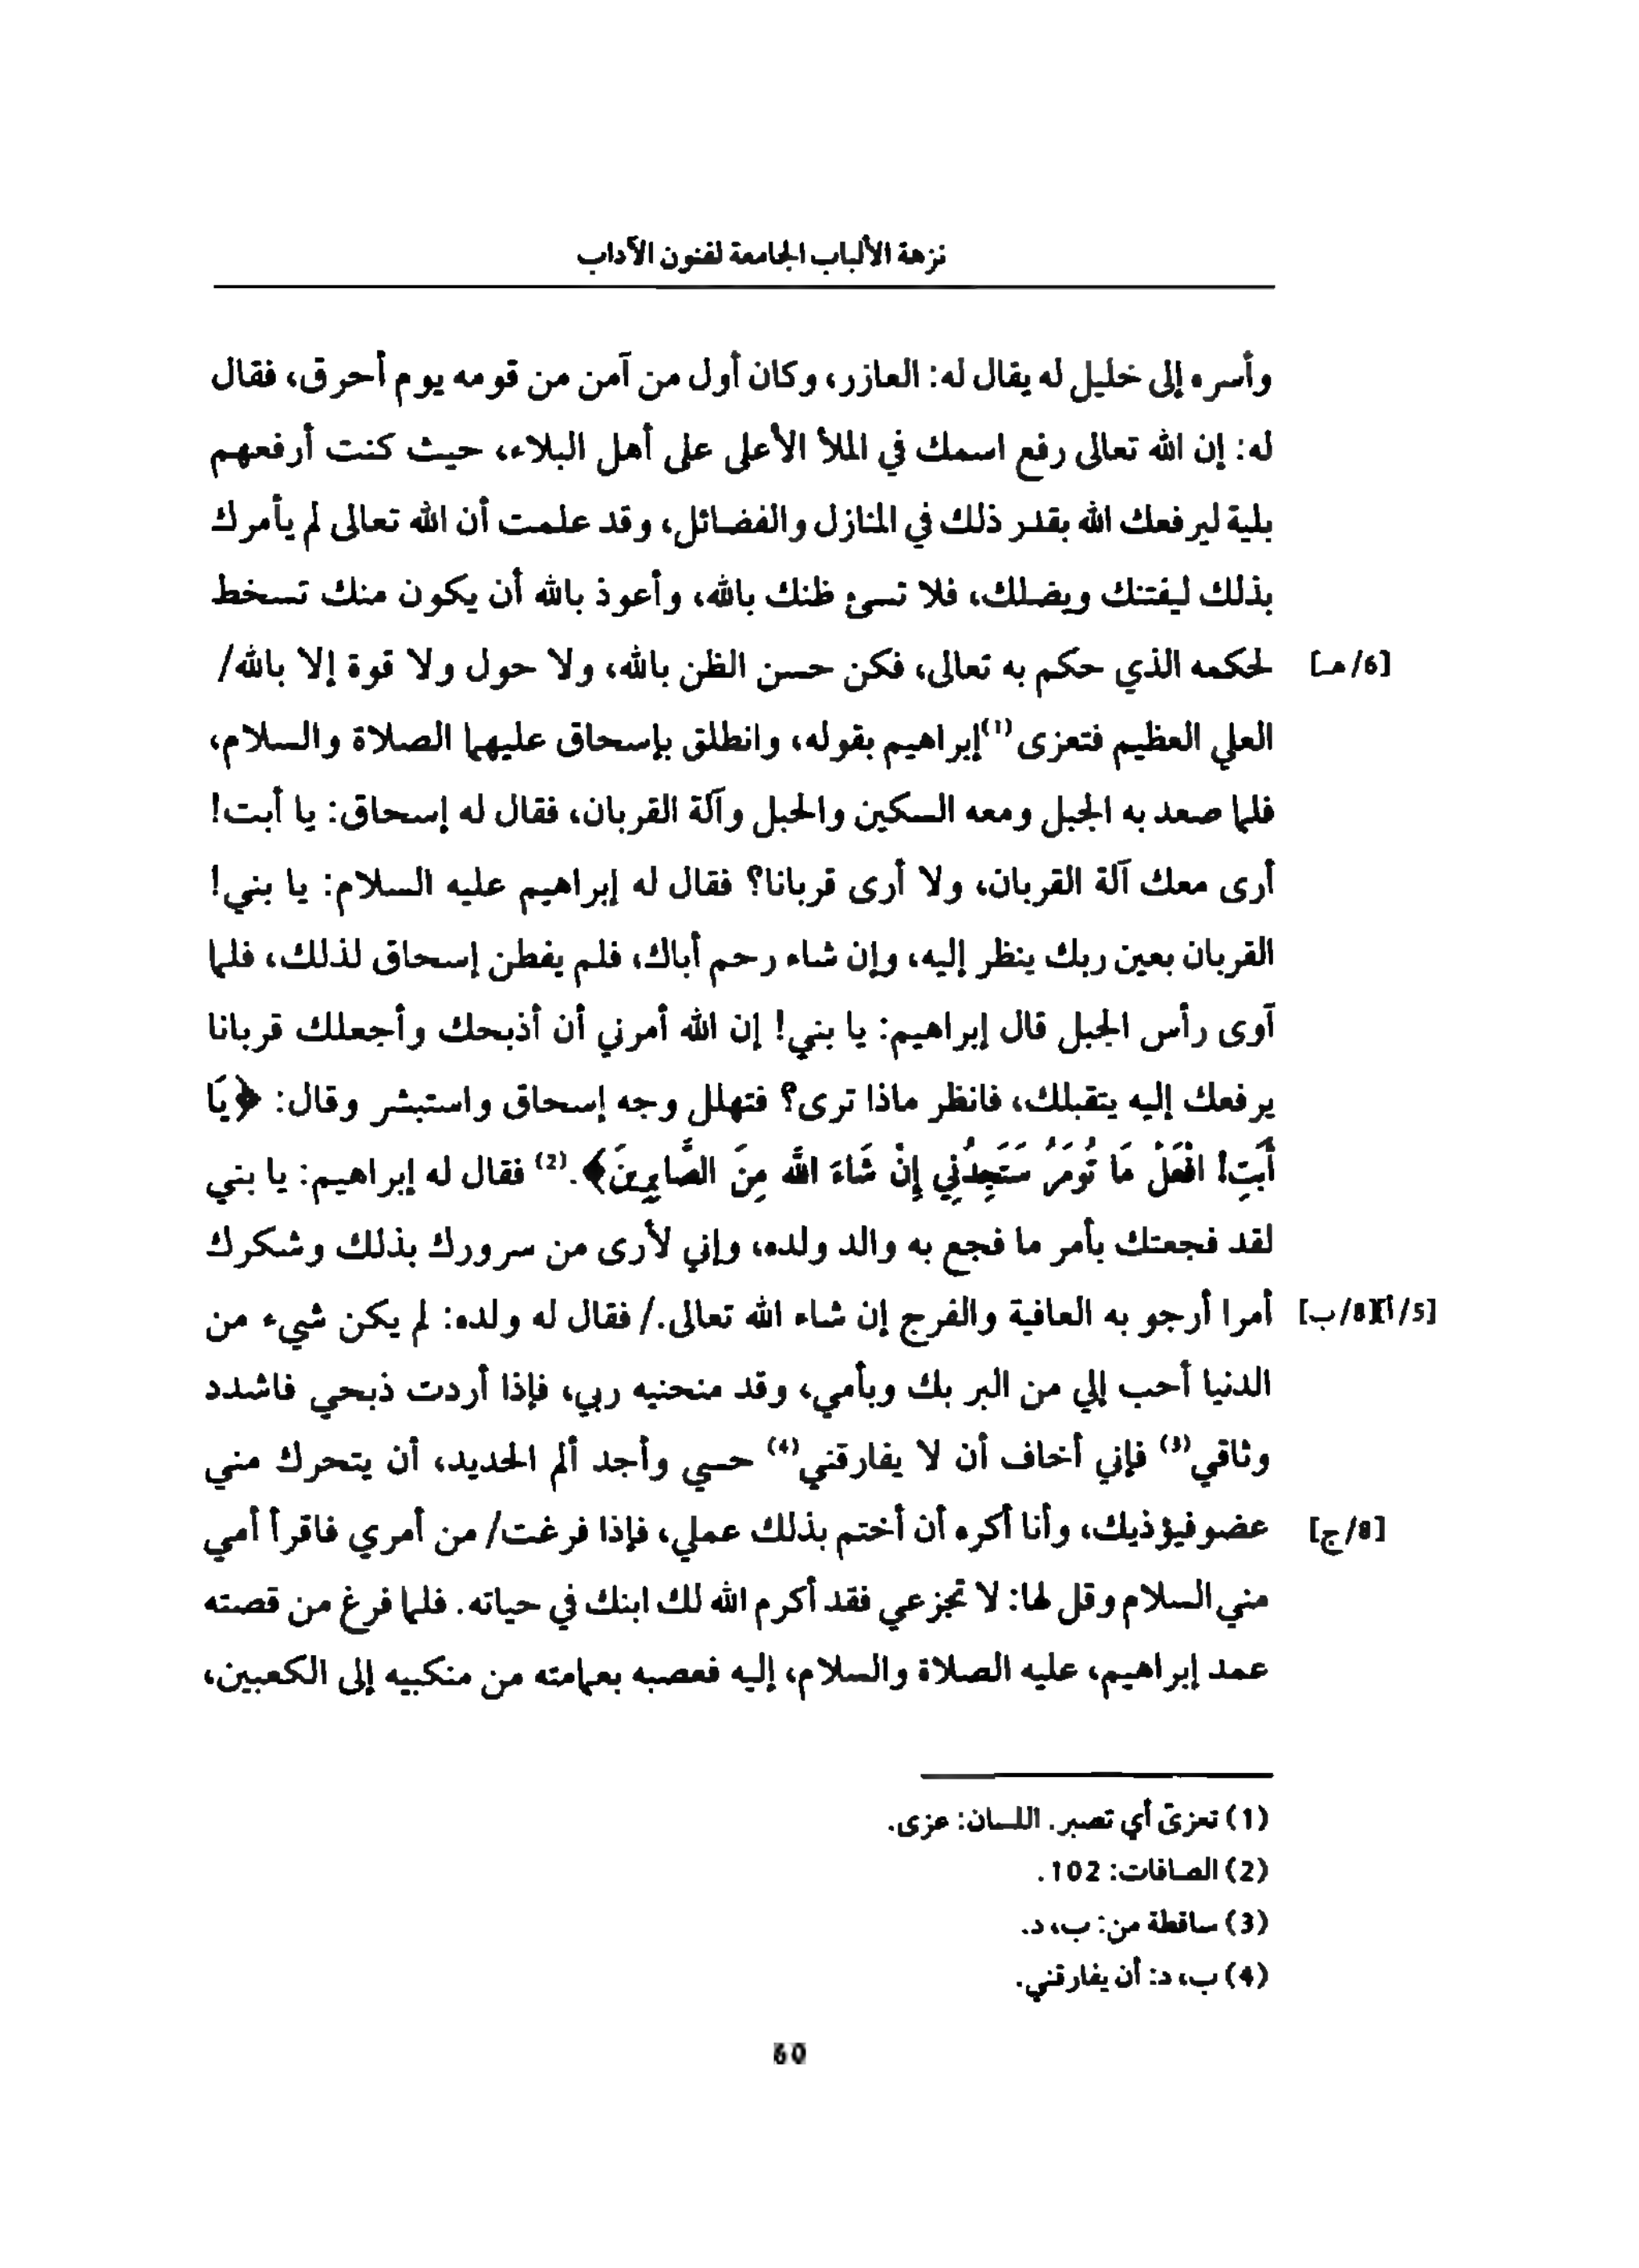 نزهة الألباب الجامعة لفنون الآداب
وأسره إلى خليل له يقال له: العازر، وكان أول من آمن من قومه يوم أحرق، فقال
له: إن الله تعالى رفع اسمك في الملأ الأعلى على أهل البلاء، حيث كنت أرفعهم
بلية ليرفعك الله بقدر ذلك في المنازل والفضائل، وقد علمت أن الله تعالى لم يأمرك
بذلك ليفتنك ويضلك، فلا تسئ ظنك بالله، وأعوذ بالله أن يكون منك تسخط
لحكمه الذي حكم به تعالى، فكن حسن الظن بالله، ولا حول ولا قوة إلا بالله/ [6/هـ]
العلي العظيم فتعزى(1) إبراهيم بقوله، وانطلق بإسحاق عليهما الصلاة والسلام،
فلما صعد به الجبل ومعه السكين والحبل وآلة القربان، فقال له إسحاق: يا أبت!
أرى معك آلة القربان، ولا أرى قربانا؟ فقال له إبراهيم عليه السلام: يا بني!
القربان بعين ربك ينظر إليه، وإن شاء رحم أباك، فلم يفطن إسحاق لذلك، فلما
آوى رأس الجبل قال إبراهيم: يا بني! إن الله أمرني أن أذبحك وأجعلك قربانا
يرفعك إليه يتقبلك، فانظر ماذا ترى؟ فتهلل وجه إسحاق واستبشر وقال: ﴿يَا
أَبَتِ! افْعَلْ مَا تُومَرُ سَتَجِدُنِي إِنْ شَاءَ الله مِنَ الصَّابِرِينَ﴾.(2) فقال له إبراهيم: يا بني
لقد فجعتك بأمر ما فجع به والد ولده، وإني لأرى من سرورك بذلك وشكرك
أمرا أرجو به العافية والفرج إن شاء الله تعالى./ فقال له ولده: لم يكن شيء من [5/أ][8/ب]
الدنيا أحب إلي من البر بك وبأمي، وقد منحنيه ربي، فإذا أردت ذبحي فاشدد
وثاقي(3) فإني أخاف أن لا يفارقني(4) حسي وأجد ألم الحديد، أن يتحرك مني
عضو فيؤذيك، وأنا أكره أن أختم بذلك عملي، فإذا فرغت/ من أمري فاقرأ أمي [8/ج]
مني السلام وقل لها: لا تجزعي فقد أكرم الله لك ابنك في حياته. فلما فرغ من قصته
عمد إبراهيم، عليه الصلاة والسلام، إليه فعصبه بعمامته من منكبيه إلى الكعبين،
(1) تعزىّ أي تصبر. اللسان: عزى.
(2) الصافات: 102.
(3) ساقطة من: ب، د.
(4) ب، د: أن يفارقني.
60